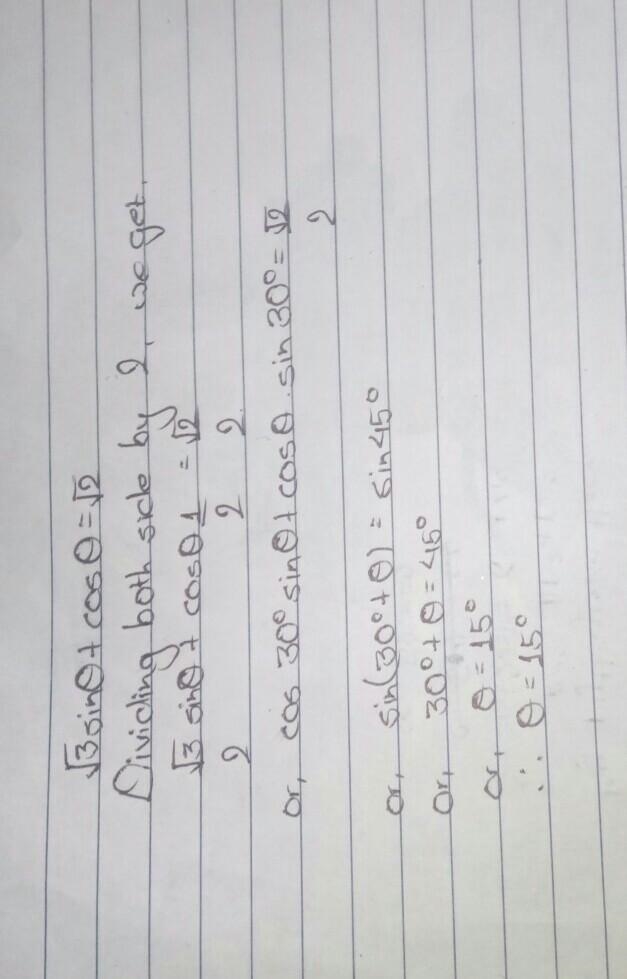 √3 sinθ + cosθ = √2
Dividing both side by 2, we get,
√3/2 sinθ + cosθ 1/2 = √2/2
or, cos 30° sinθ + cosθ. sin 30° = √2/2
or, sin(30° + θ) = sin45°
or, 30° + θ = 45°
or, θ = 15°
∴ θ = 15°